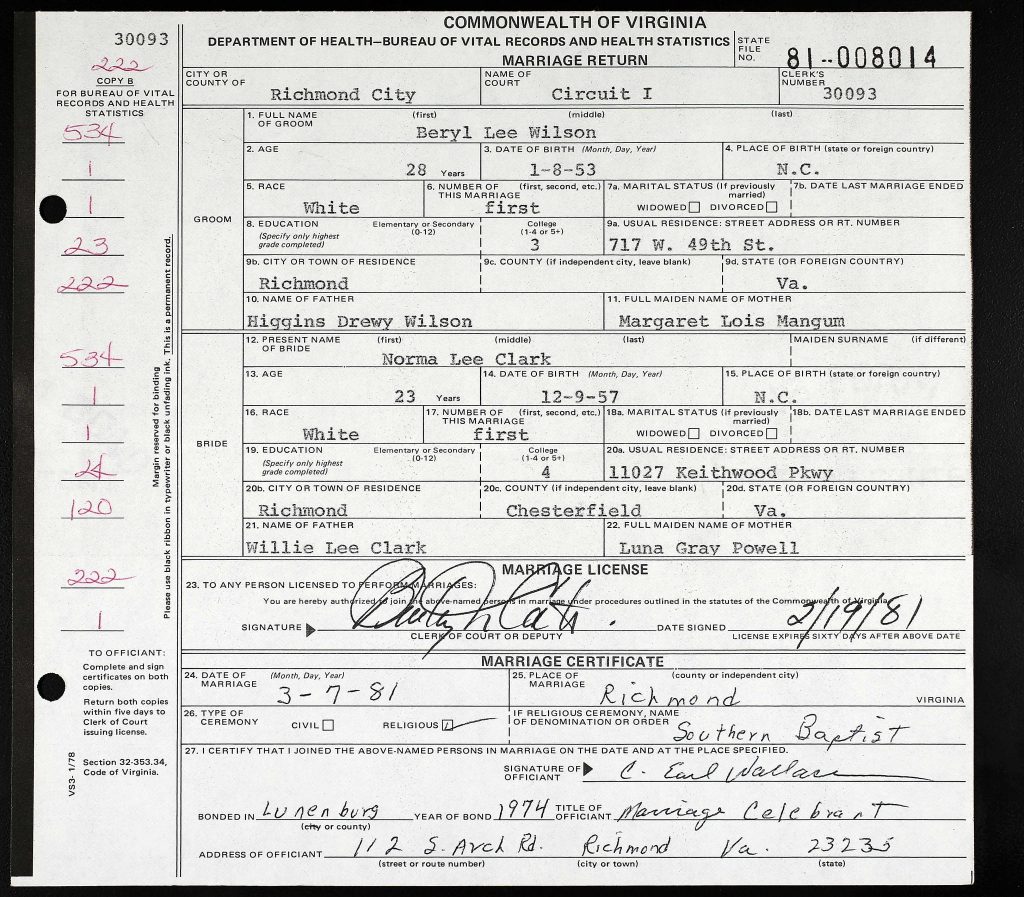 COMMONWEALTH OF VIRGINIA
DEPARTMENT OF HEALTH—BUREAU OF VITAL RECORDS AND HEALTH STATISTICS
MARRIAGE RETURN
STATE FILE NO. 81--008014
30093
222
COPY B
FOR BUREAU OF VITAL
RECORDS AND HEALTH
STATISTICS
534
1
1
23
222
534
1
1
24
120
222
1
Margin reserved for binding
Please use black ribbon in typewriter or black unfading ink. This is a permanent record.
TO OFFICIANT:
Complete and sign
certificates on both
copies.
Return both copies
within five days to
Clerk of Court
issuing license.
Section 32-353.34,
Code of Virginia.
VS3- 1/78
CITY OR COUNTY OF Richmond City
NAME OF COURT Circuit I
CLERK'S NUMBER 30093
GROOM
1. FULL NAME OF GROOM (first) (middle) (last)
Beryl Lee Wilson
2. AGE 28 Years
3. DATE OF BIRTH (Month, Day, Year) 1-8-53
4. PLACE OF BIRTH (state or foreign country) N.C.
5. RACE White
6. NUMBER OF THIS MARRIAGE (first, second, etc.) first
7a. MARITAL STATUS (If previously married) WIDOWED DIVORCED
7b. DATE LAST MARRIAGE ENDED
8. EDUCATION (Specify only highest grade completed) Elementary or Secondary (0-12) College (1-4 or 5+) 3
9a. USUAL RESIDENCE: STREET ADDRESS OR RT. NUMBER
717 W. 49th St.
9b. CITY OR TOWN OF RESIDENCE Richmond
9c. COUNTY (if independent city, leave blank)
9d. STATE (OR FOREIGN COUNTRY) Va.
10. NAME OF FATHER Higgins Drewy Wilson
11. FULL MAIDEN NAME OF MOTHER Margaret Lois Mangum
BRIDE
12. PRESENT NAME OF BRIDE (first) (middle) (last) MAIDEN SURNAME (if different)
Norma Lee Clark
13. AGE 23 Years
14. DATE OF BIRTH (Month, Day, Year) 12-9-57
15. PLACE OF BIRTH (state or foreign country) N.C.
16. RACE White
17. NUMBER OF THIS MARRIAGE (first, second, etc.) first
18a. MARITAL STATUS (if previously married) WIDOWED DIVORCED
18b. DATE LAST MARRIAGE ENDED
19. EDUCATION (Specify only highest grade completed) Elementary or Secondary (0-12) College (1-4 or 5+) 4
20a. USUAL RESIDENCE: STREET ADDRESS OR RT. NUMBER
11027 Keithwood Pkwy
20b. CITY OR TOWN OF RESIDENCE Richmond
20c. COUNTY (if independent city, leave blank) Chesterfield
20d. STATE (OR FOREIGN COUNTRY) Va.
21. NAME OF FATHER Willie Lee Clark
22. FULL MAIDEN NAME OF MOTHER Luna Gray Powell
MARRIAGE LICENSE
23. TO ANY PERSON LICENSED TO PERFORM MARRIAGES:
You are hereby authorized to join the above-named persons in marriage under procedures outlined in the statutes of the Commonwealth of Virginia.
SIGNATURE DATE SIGNED 2/19/81
CLERK OF COURT OR DEPUTY LICENSE EXPIRES SIXTY DAYS AFTER ABOVE DATE
MARRIAGE CERTIFICATE
24. DATE OF MARRIAGE (Month, Day, Year) 3-7-81
25. PLACE OF MARRIAGE (county or independent city) Richmond VIRGINIA
26. TYPE OF CEREMONY CIVIL RELIGIOUS
IF RELIGIOUS CEREMONY, NAME OF DENOMINATION OR ORDER Southern Baptist
27. I CERTIFY THAT I JOINED THE ABOVE-NAMED PERSONS IN MARRIAGE ON THE DATE AND AT THE PLACE SPECIFIED.
SIGNATURE OF OFFICIANT C. Earl Wallace
BONDED IN Lunenburg YEAR OF BOND 1974 TITLE OF OFFICIANT Marriage Celebrant
(city or county)
ADDRESS OF OFFICIANT 112 S. Arch Rd. Richmond Va. 23235
(street or route number) (city or town) (state)